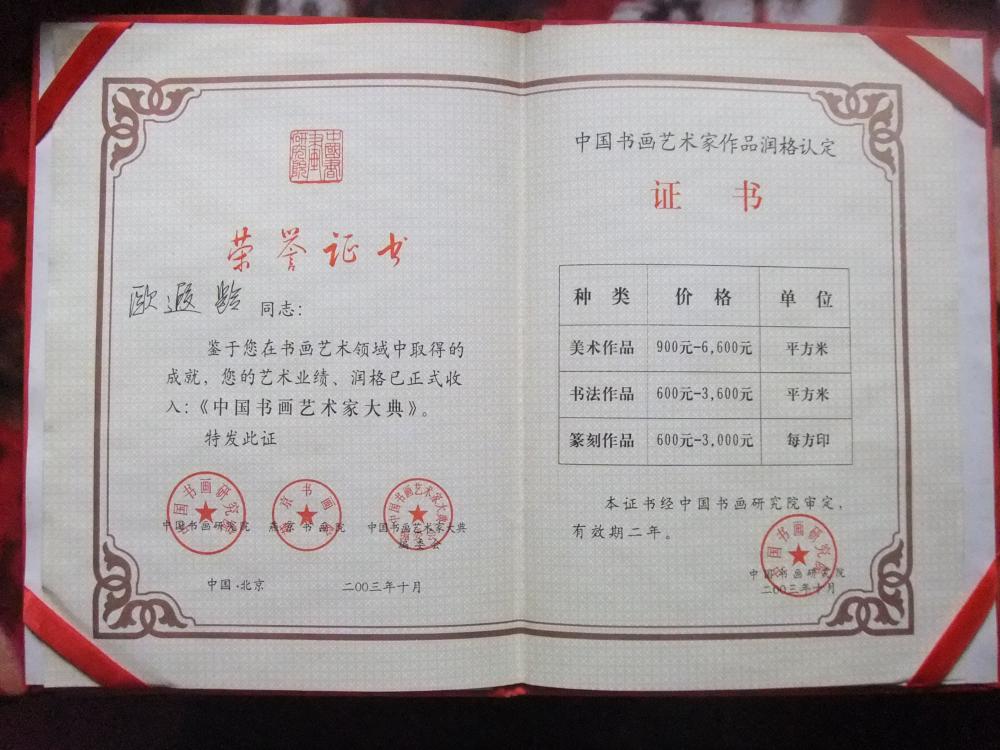 中国书画研究院
荣誉证书
欧遐龄 同志：
鉴于您在书画艺术领域中取得的
成就，您的艺术业绩、润格已正式收
入：《中国书画艺术家大典》。
特发此证
中国书画研究院 燕京书画院 中国书画艺术家大典
编委会
中国·北京 二00三年十月
中国书画艺术家作品润格认定
证书
种类 价格 单位
美术作品 900元-6,600元 平方米
书法作品 600元-3,600元 平方米
篆刻作品 600元-3,000元 每方印
本证书经中国书画研究院审定，
有效期二年。
中国书画研究院
二00三年十月